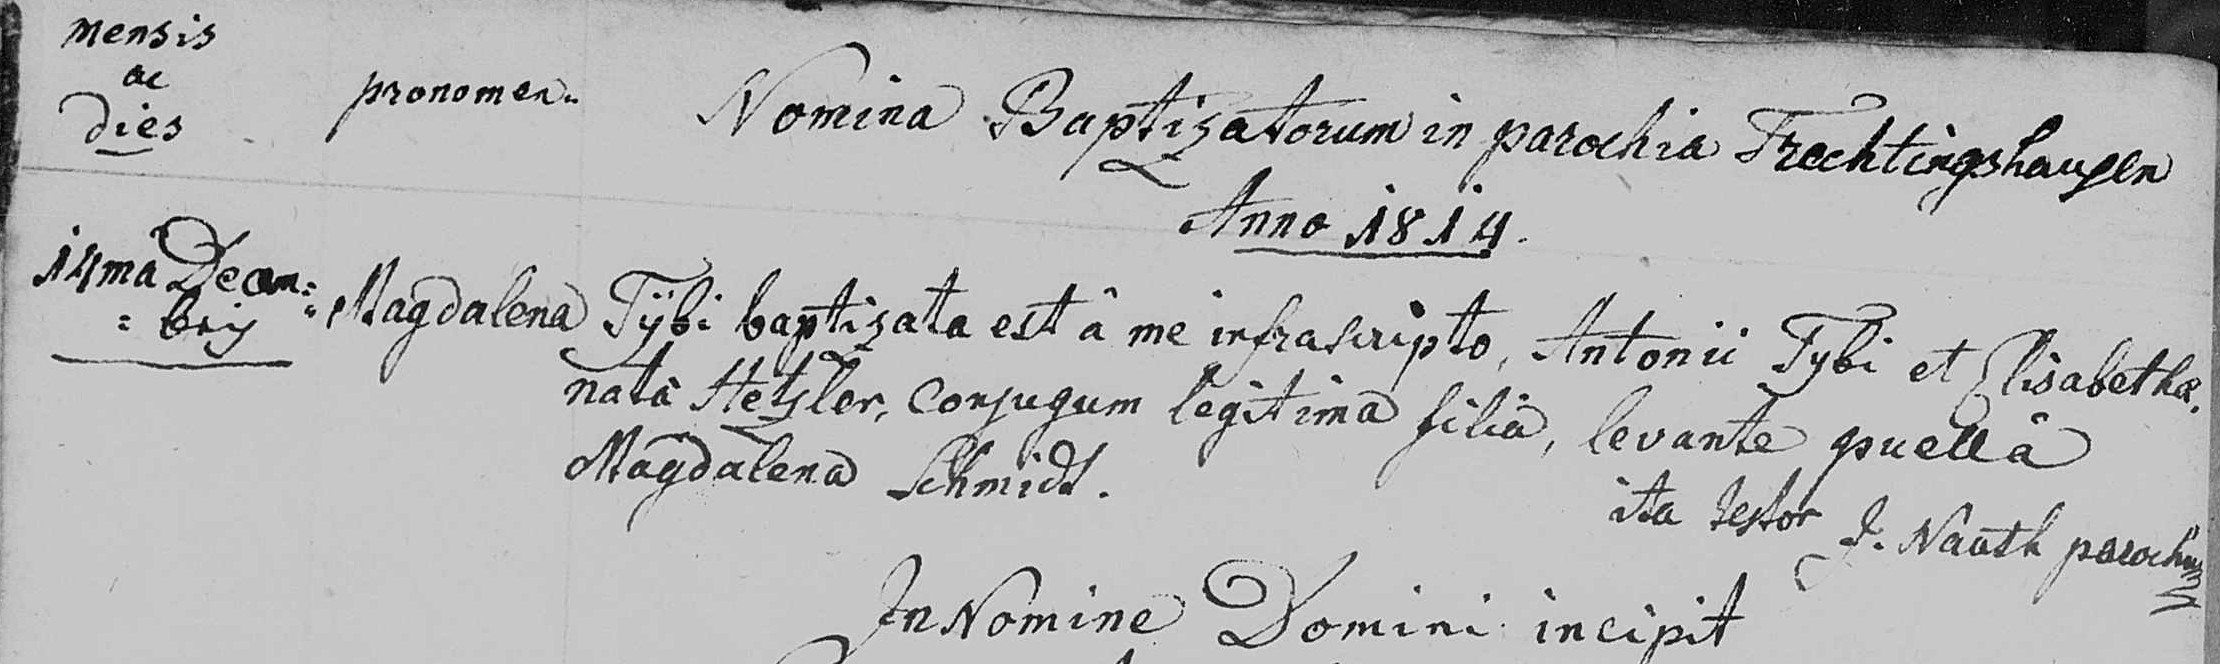 mensis
ac
dies
pronomen.
Nomina Baptizatorum in parochia Trechtingshausen
Anno 1814.
14ma Decem=
=bris
Magdalena Tÿbi baptizata est â me infrascripto, Antonii Tybi et Elisabethæ
nata Hetzler, conjugum legitima filia, levante puellâ
Magdalena Schmidt.
ita testor J. Nauth parochus
In Nomine Domini incipit